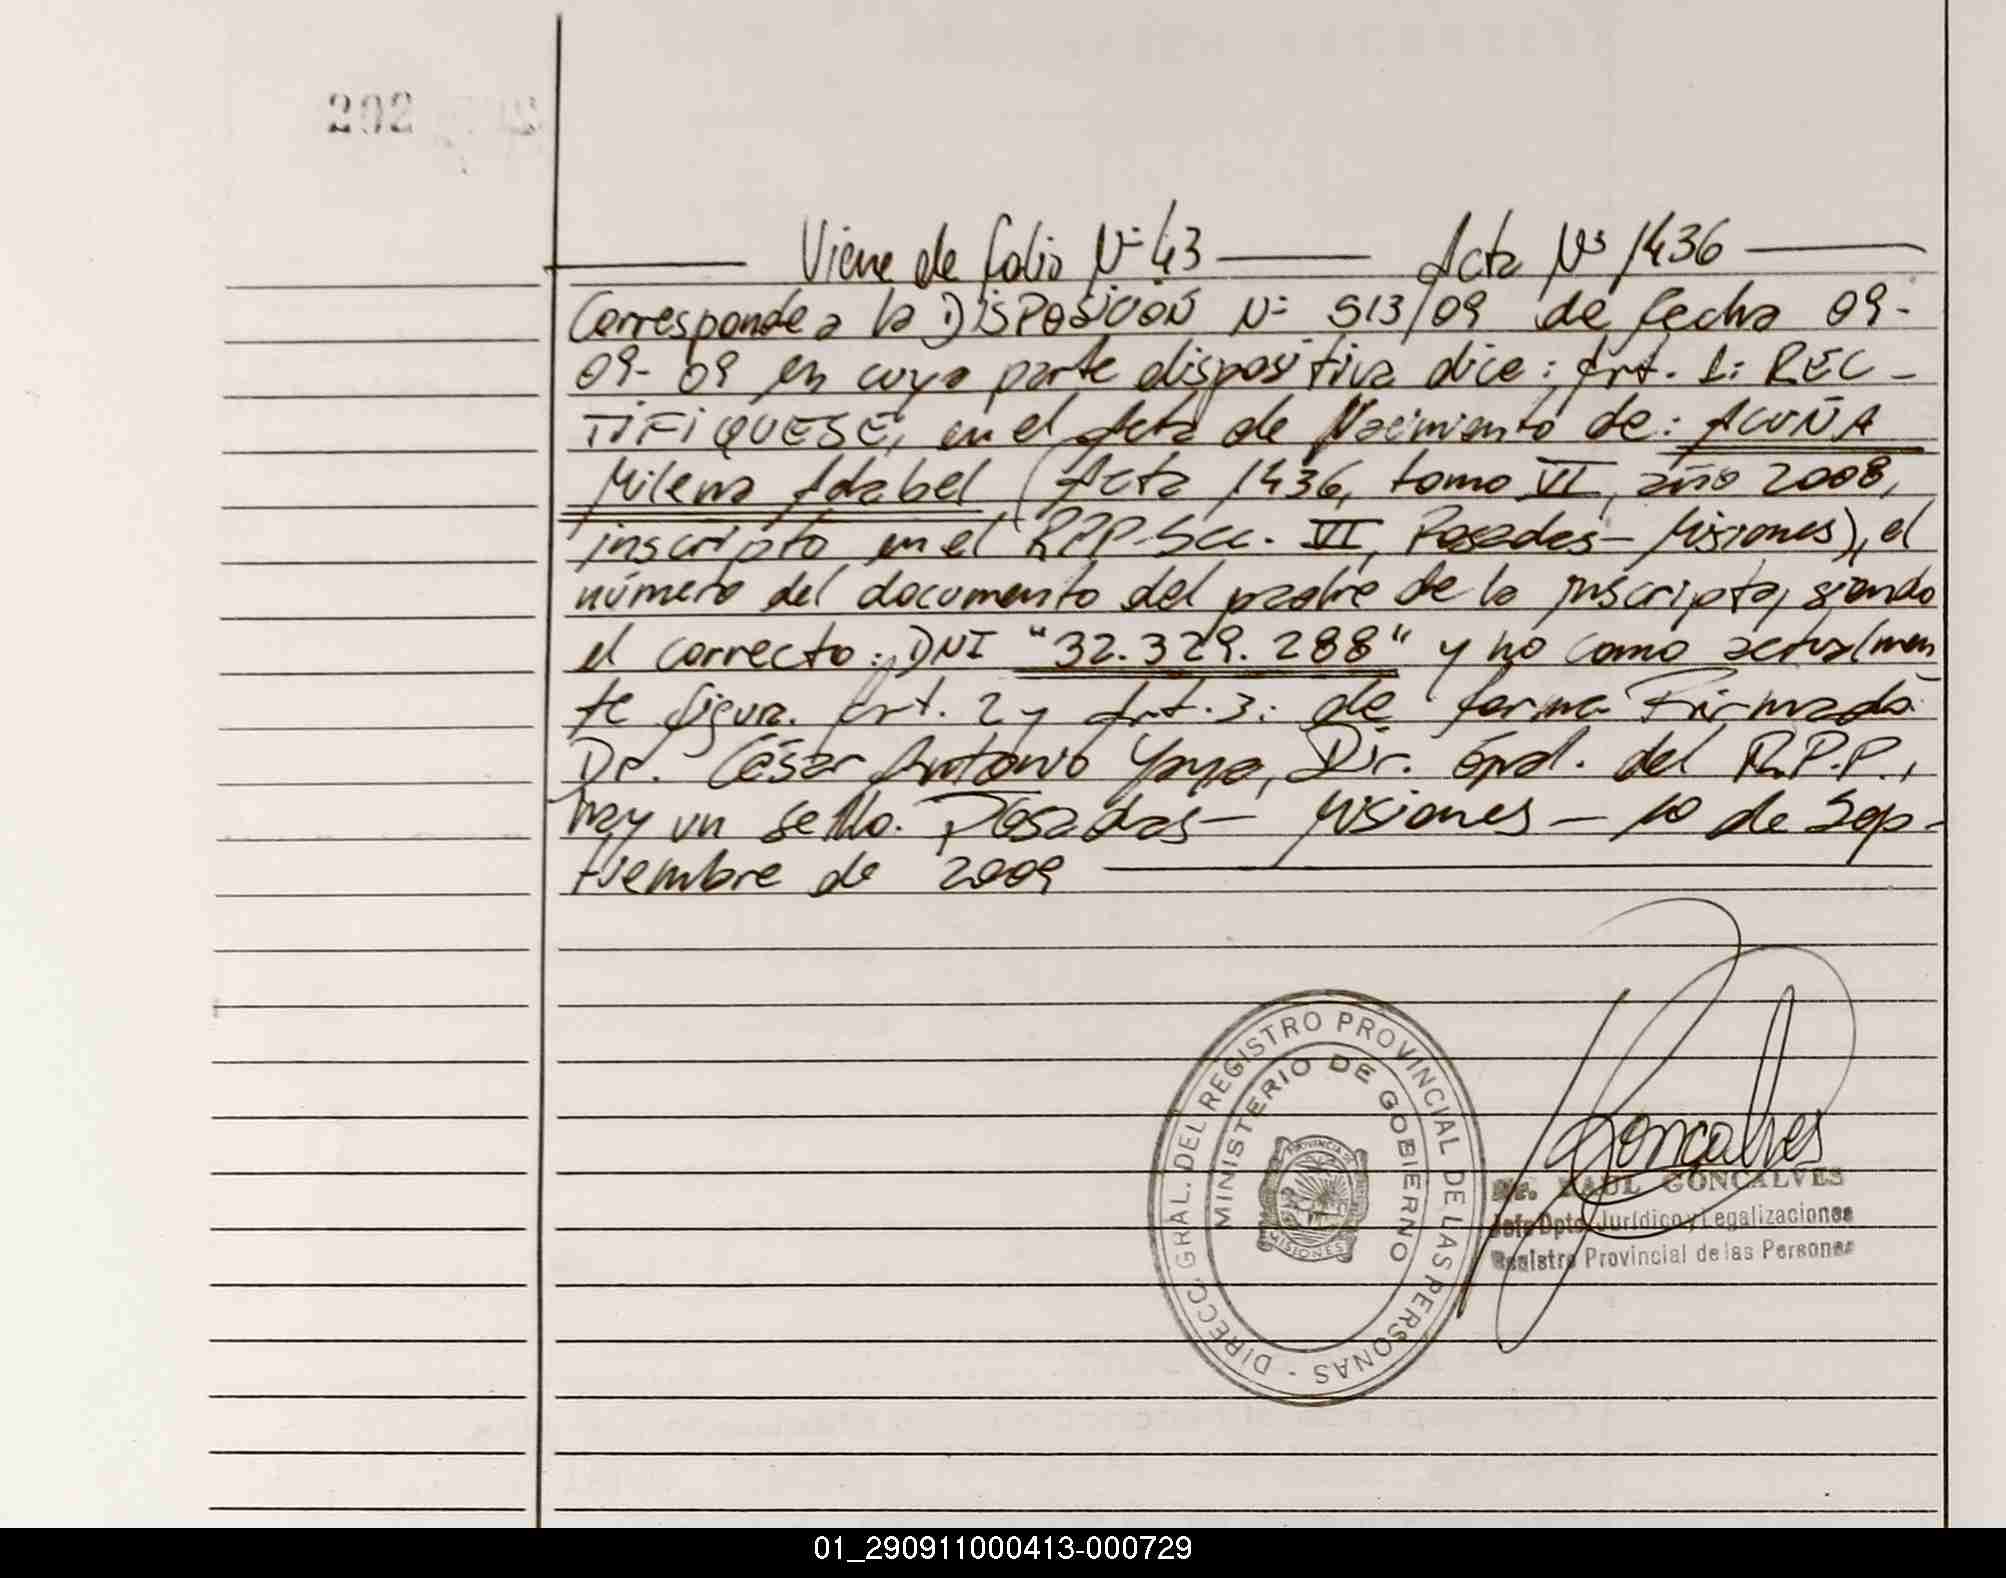 202
Viene de folio Nº 43 — Acta Nº 1436 —
Corresponde a la DISPOSICIÓN Nº 513/09 de fecha 09-
09-09 en cuya parte dispositiva dice: Art. 1: REC-
TIFIQUESE, en el Acta de Nacimiento de: ACUÑA
Milena Adabel (Acta 1436, tomo VI, año 2008,
inscripto en el RPP-Secc. VI, Posadas-Misiones), el
número del documento del padre de la inscripta, siendo
el correcto: DNI "32.329.288" y no como actualmen
te figura. Art. 2 y Art. 3: de forma Firmado:
Dr. César Antonio Yaya, Dir. Gral. del R.P.P.,
hay un sello. Posadas- Misiones - 10 de Sep-
tiembre de 2009
DIRECC. GRAL. DEL REGISTRO PROVINCIAL DE LAS PERSONAS -
MINISTERIO DE GOBIERNO
PROVINCIA DE
MISIONES
Goncalves
RAUL GONCALVES
Jefe Dpto. Jurídico y Legalizaciones
Registro Provincial de las Personas
01_290911000413-000729